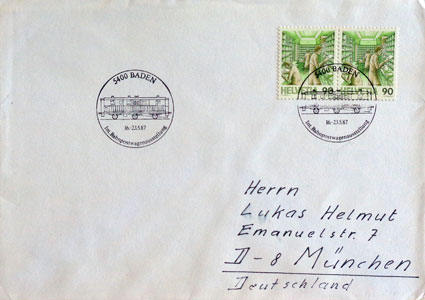 5400 BADEN
16.-23.5.87
Int. Bahnpostwagenausstellung
HELVETIA 90
HELVETIA 90
5400 BADEN
16.-23.5.87
Int. Bahnpostwagenausstellung
Herrn
Lukas Helmut
Emanuelstr. 7
D-8 München
Deutschland